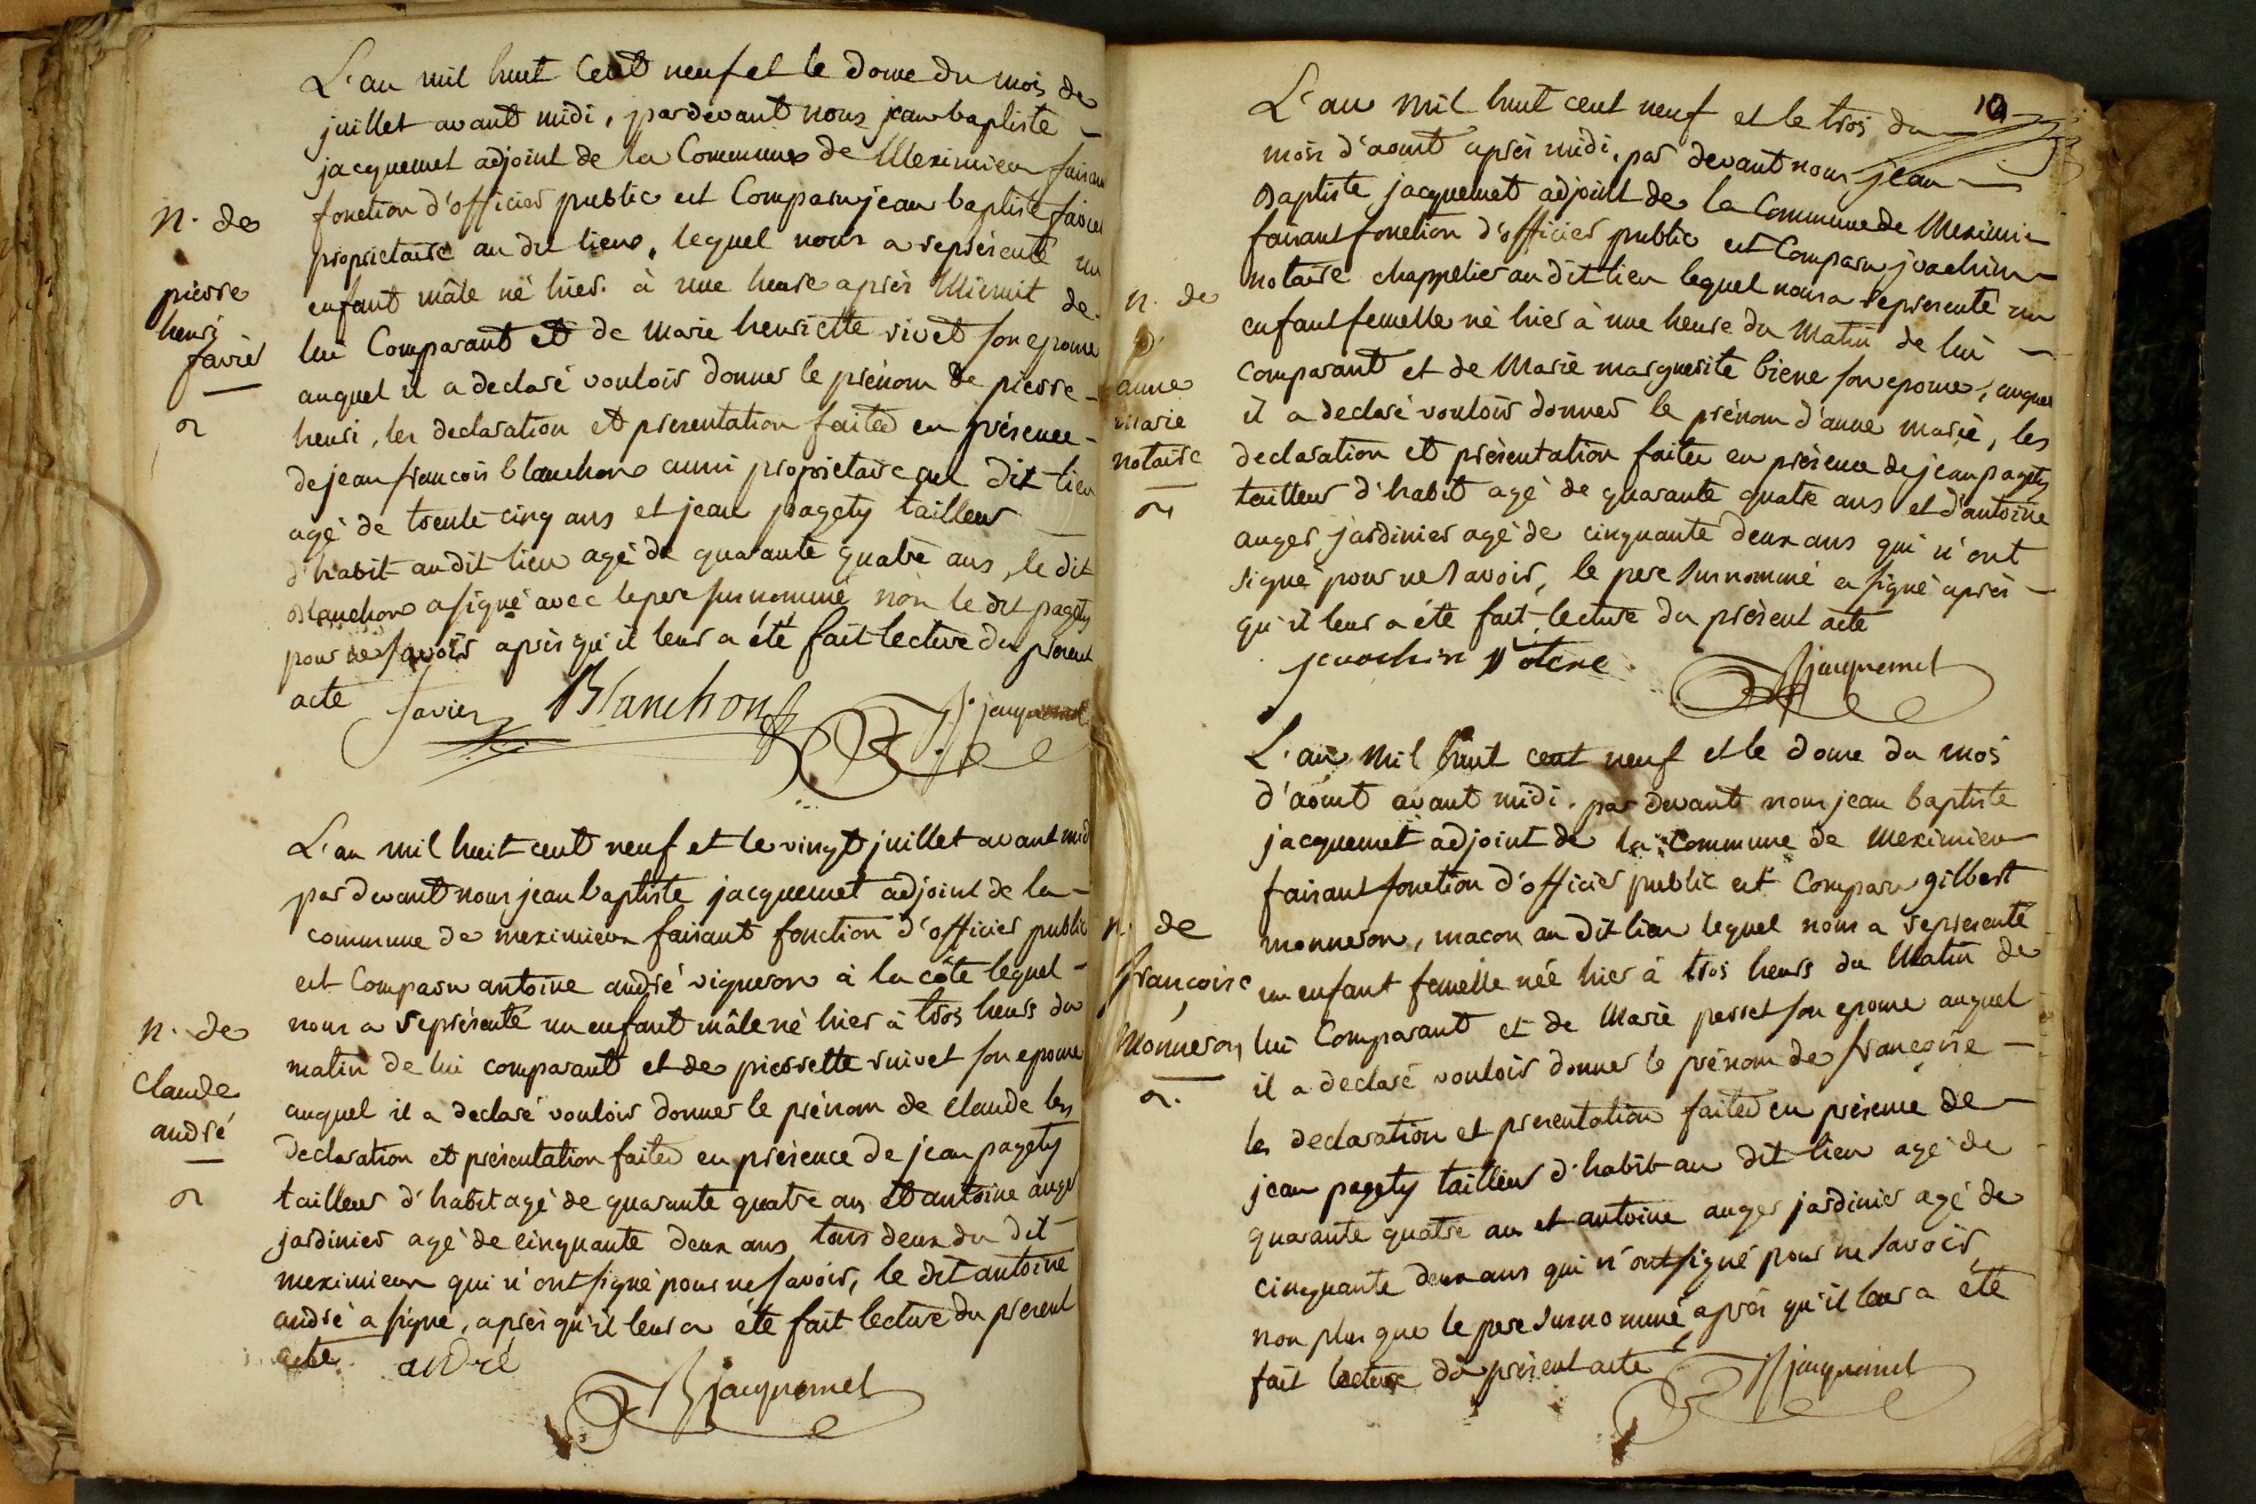 L'an mil huit Cent neuf et le douze du mois de
juillet avant midi, pardevant nous jean baptiste
jacquemet adjoint de la Commune de Meximieu faisant
fonction d'officier public est Comparu jean baptiste favier
proprietaire au dit lieu, lequel nous a representé un
enfant mâle né hier à une heure après Minuit de
lui Comparant et de Marie henriette rivet son epouse
auquel il a declaré vouloir donner le prénom de pierre
henri, les declaration et presentation faites en présence
de jean francois blanchon aussi proprietaire au dit lieu
agé de trente cinq ans et jean pagety tailleur
d'habit au dit lieu agé de quarante quatre ans, le dit
Blanchon a signé avec le pere surnommé non le dit pagety
pour ne savoir après qu'il leur a été fait lecture du present
acte
favier Blanchon jacquemet
N. de
pierre
henri
favier
L'an mil huit cent neuf et le vingt juillet avant midi
par devant nous jean baptiste jacquemet adjoint de la
commune de meximieux faisant fonction d'officier public
est Comparu antoine andré vigneron à la côte lequel
nous a représenté un enfant mâle né hier à trois heurs du
matin de lui comparant et de pierrette ruivet son epouse
auquel il a declaré vouloir donner le prénom de claude les
declaration et présentation faites en présence de jean pagety
tailleur d'habit agé de quarante quatre ans et antoine auger
jardinier agé de cinquante deux ans tous deux du dit
meximieux qui n'ont signé pour ne savoir, le dit antoine
andré a signé, après qu'il leur a été fait lecture du present
acte.
andré jacquemet
N. de
Claude
andré
10
L'an mil huit cent neuf et le trois du
mois d'aout après midi, par devant nous jean
Baptiste jacquemet adjoint de la Commune de Meximieu
faisant fonction d'officier public est Comparu joachim
notaire chappelier au dit lieu lequel nous a representé un
enfant femelle né hier à une heure du Matin de lui
Comparant et de Marie marguerite biene son epouse, auquel
il a declaré vouloir donner le prénom d'anne marie, les
declaration et présentation faites en présence de jean pagety
tailleur d'habit agé de quarante quatre ans et d'antoine
auger jardinier agé de cinquante deux ans qui n'ont
signé pour ne savoir, le pere surnommé a signé après
qu'il leur a été fait lecture du présent acte
jacquemet
N. de
anne
marie
notaire
L'an mil huit cent neuf et le douze du mois
d'aout avant midi, par devant nous jean baptiste
jacquemet adjoint de la Commune de meximieu
faisant fonction d'officier public est Comparu gilbert
monneron, macon au dit lieu lequel nous a representé
un enfant femelle née hier à trois heurs du Matin de
lui Comparant et de Marie perset son epouse auquel
il a declaré vouloir donner le prénom de françoise
les declaration et presentation faites en présence de
jean pagety tailleur d'habit au dit lieu agé de
quarante quatre ans et antoine auger jardinier agé de
cinquante deux ans qui n'ont signé pour ne savoir
non plus que le pere surnommé après qu'il leur a été
fait lecture du présent acte
jacquemet
N. de
françoise
Monneron